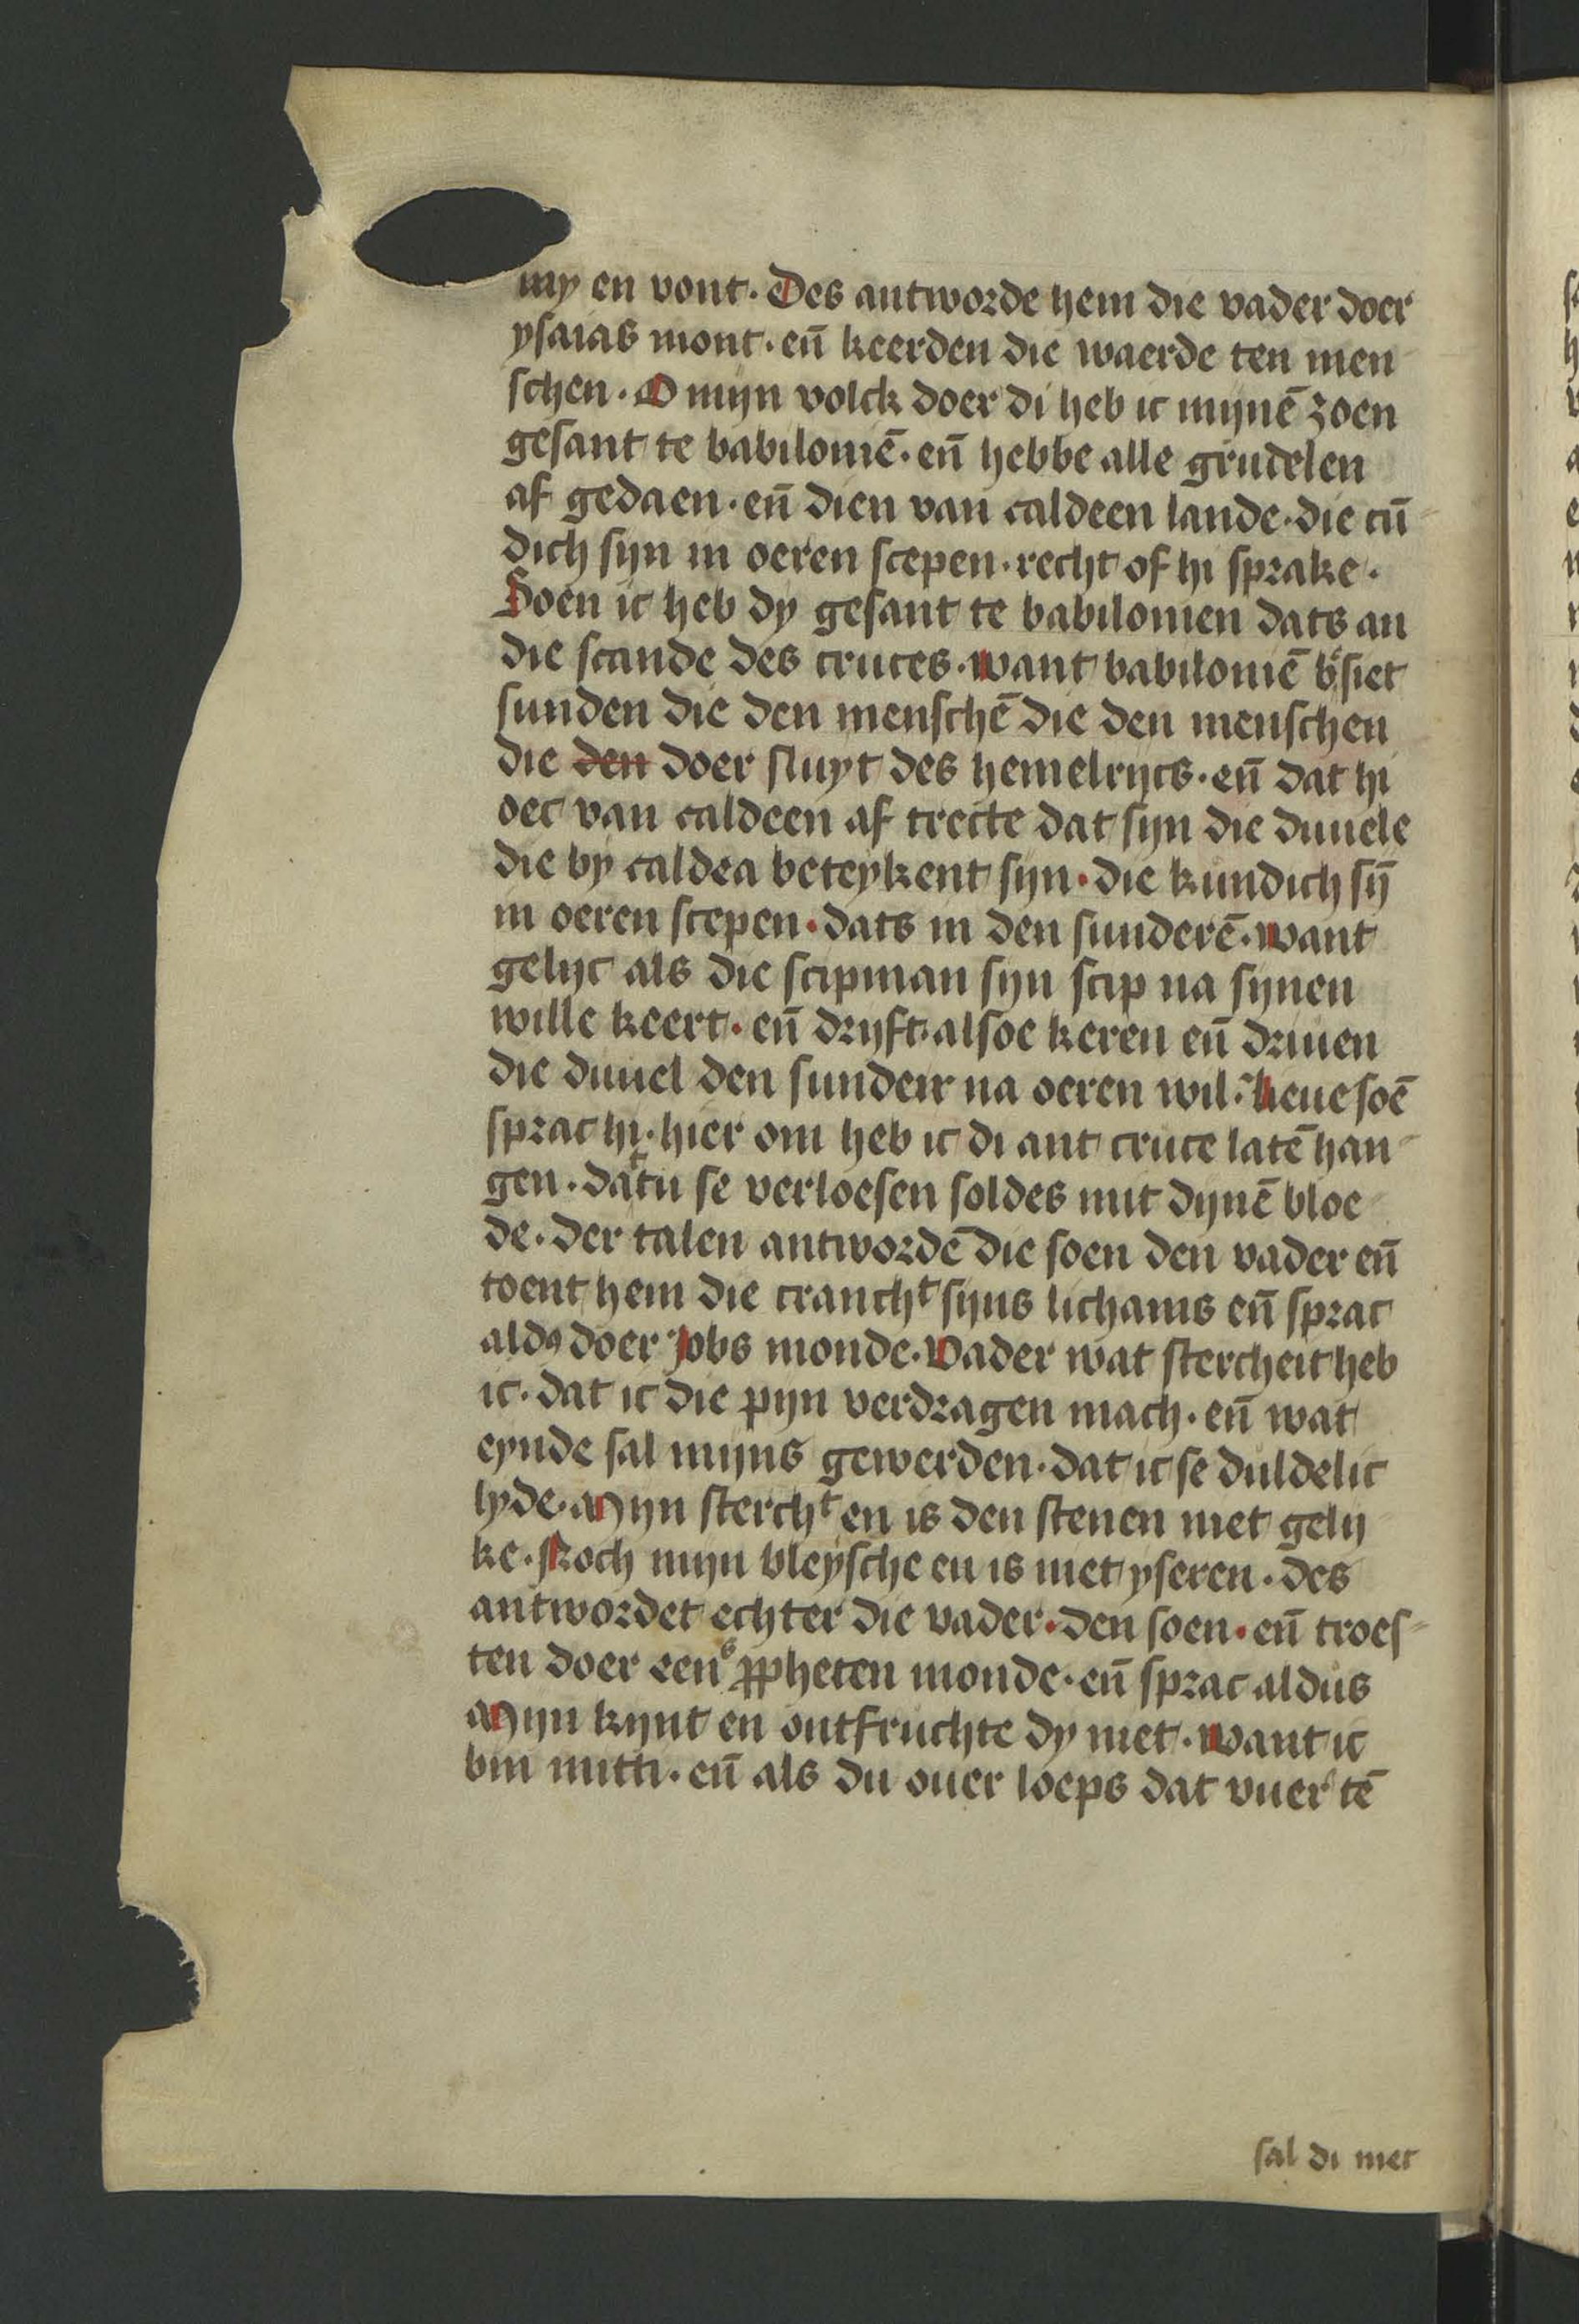 my en vont. Des antworde hem die vader doer
ysaias mont. en̄ keerden die waerde ten men
schen. O mijn volck doer di heb ic mijnē zoen
gesant te babiloniē. en̄ hebbe alle grudelen
af gedaen. en̄ dien van caldeen lande. die cū
dich sijn in oeren scepen. recht of hi sprake.
Soen ic heb dy gesant te babilonien dats an
die scande des cruces. want babiloniē b siet
sunden die den menschē die den menschen
die den doer sluyt des hemelrijcs. en̄ dat hi
oec van caldeen af trecte dat sijn die duuele
die by caldea beteykent sijn. die kundich sȳ
in oeren scepen. dats in den sunderē. want
gelijc als die scipman sijn scip na sijnen
wille keert. en̄ drijft. alsoe keren en̄ driuen
die duuel den sunderr na oeren wil. lieue soē
sprac hi. hier om heb ic di ant cruce latē han
gen. dattu se verloesen soldes mit dijnē bloe
de. der talen antwordē die soen den vader en̄
toent hem die cranchᵗ sijns lichams en̄ sprac
aldꝰ doer jobs monde. Vader wat stercheit heb
ic. dat ic die pijn verdragen mach. en̄ wat
eynde sal mijns gewerden. dat ic se duldelic
lyde. Mijn sterchᵗ en is den stenen niet gelij
ke. Noch mijn vleysche en is niet yseren. des
antwordet echter die vader. den soen. en̄ troes
ten doer eens ꝓpheten monde. en̄ sprac aldus
Mijn kijnt en ontfruchte dy niet. want ic
bin mitti. en̄ als du ouer loeps dat vuer tē
sal di niet